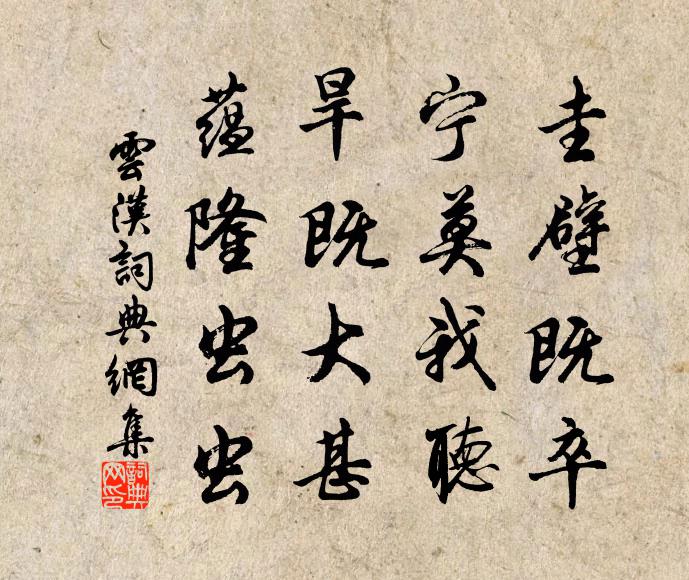 圭璧既卒
宁莫我聽
旱既大甚
蘊隆虫虫
雲漢詞典網集
詞典
网印